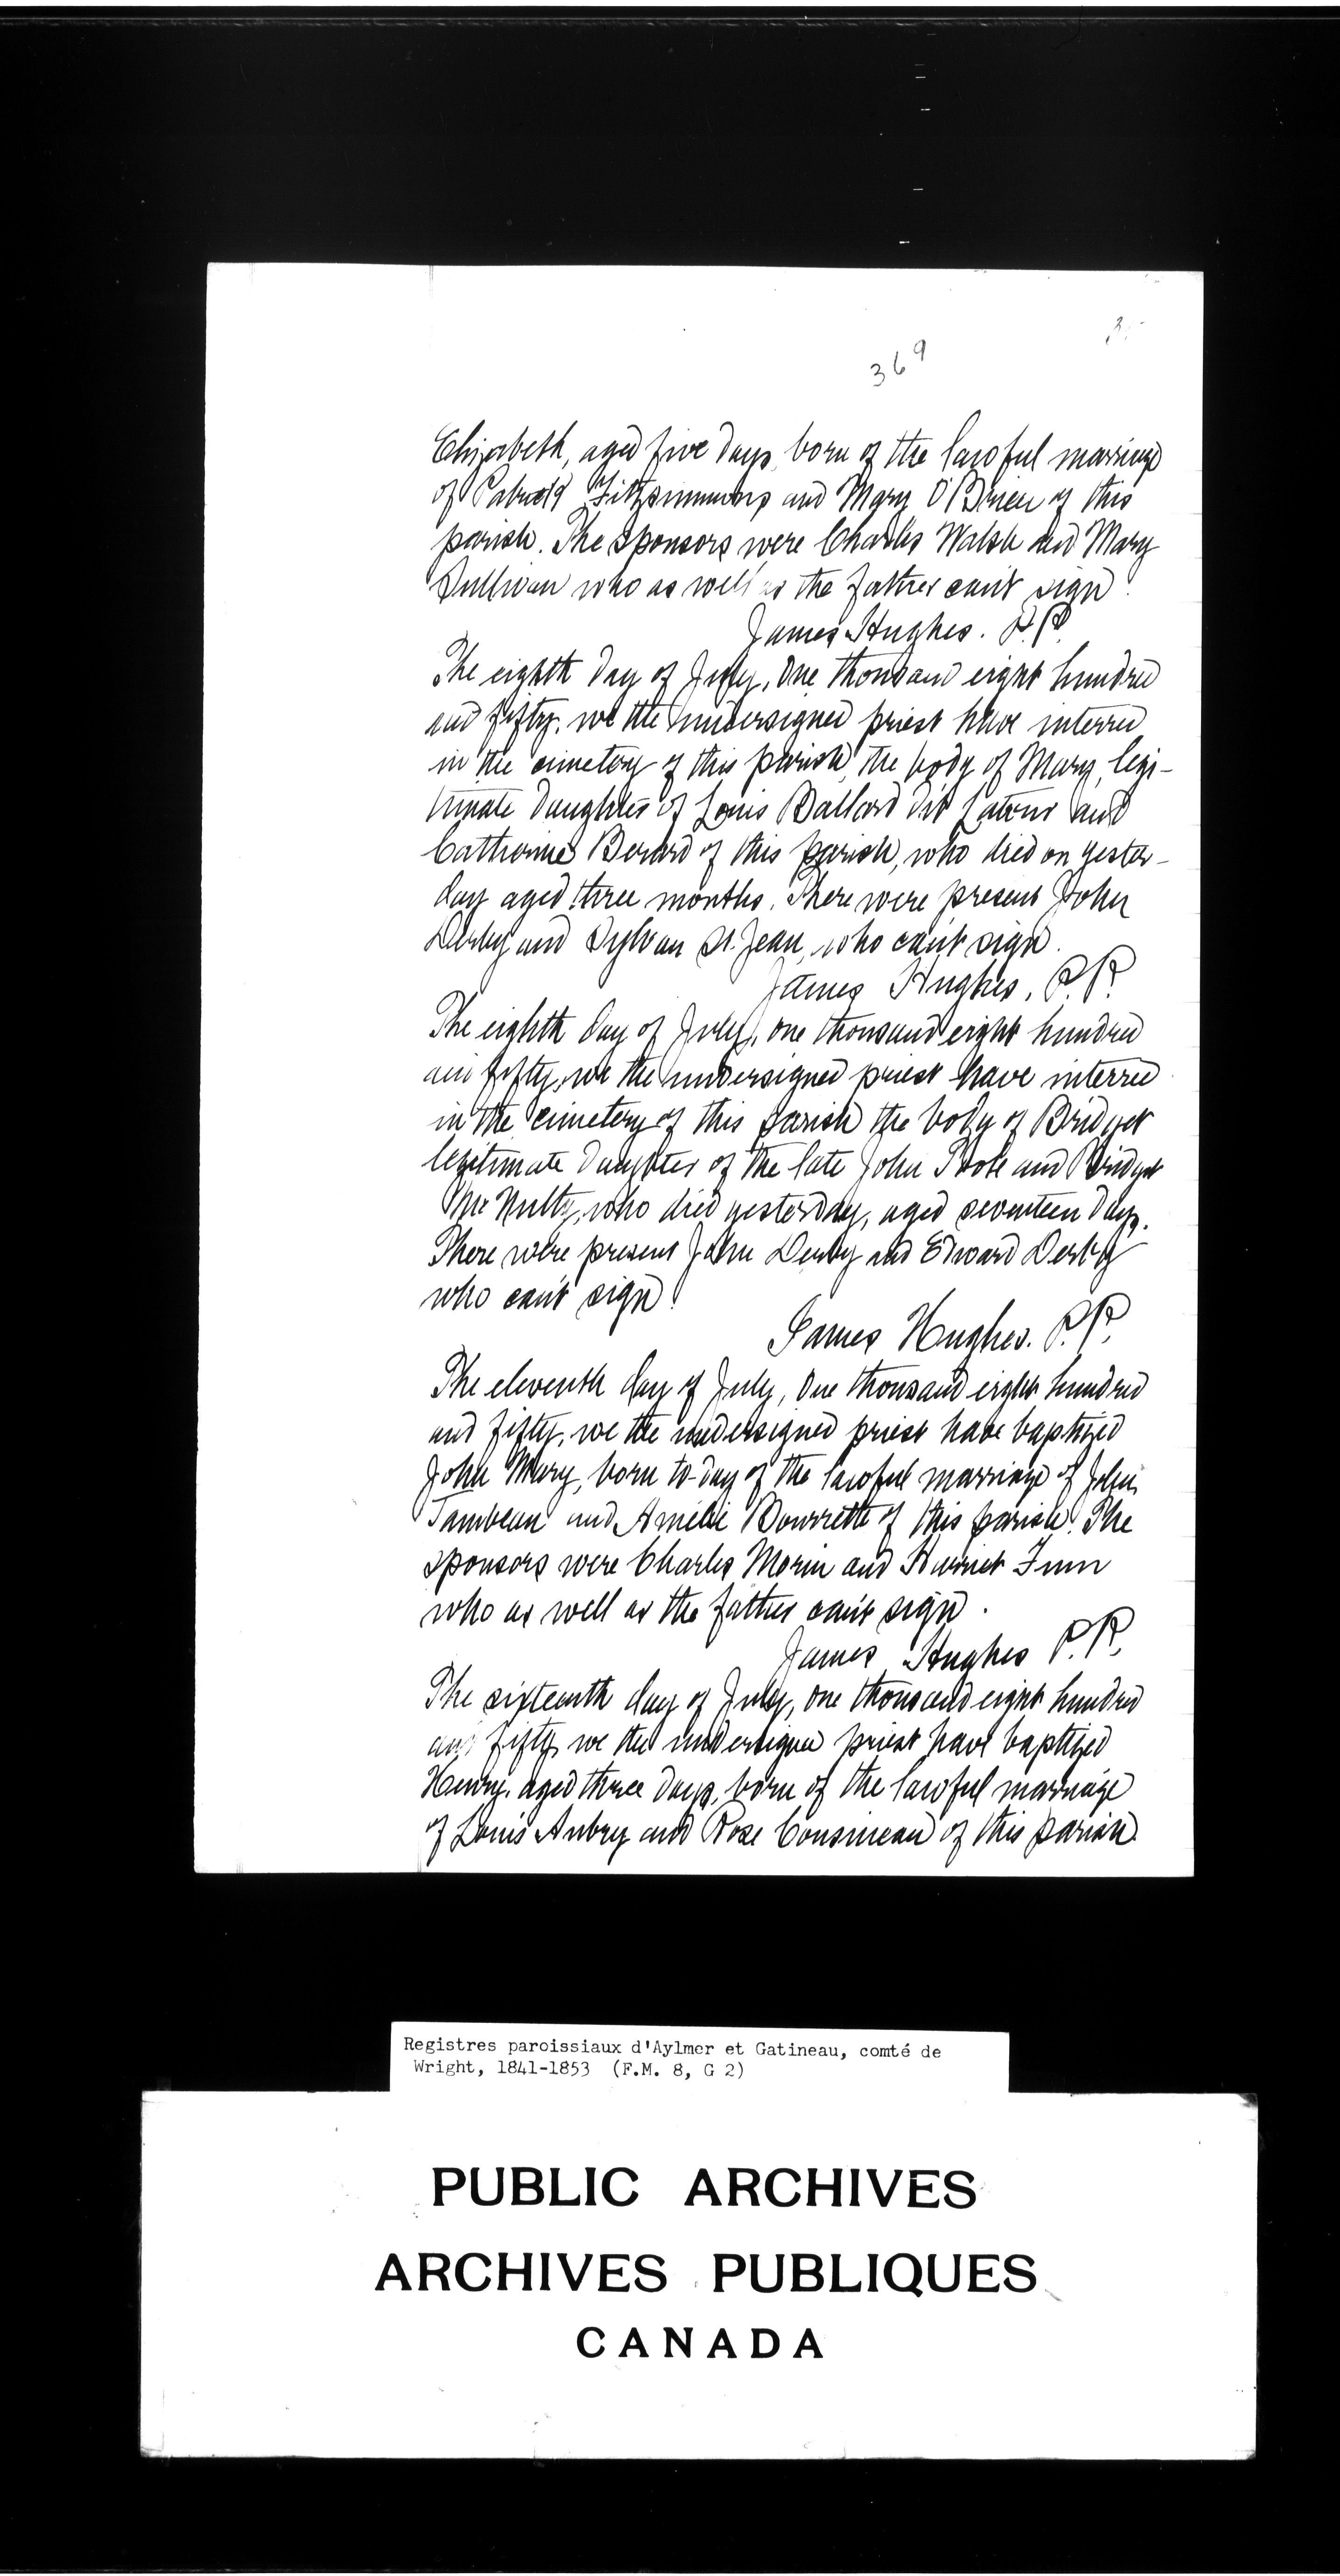 369
Elizabeth, aged five days, born of the lawful marriage
of Patrick Fitzsimmons and Mary O'Brien of this
parish. The sponsors were Charles Walsh and Mary
Sullivan who as well as the father can't sign.
James Hughes. P.P.
The eighth day of July, one thousand eight hundred
and fifty, we the undersigned priest have interred
in the cimetery of this parish, the body of Mary, legi-
timate daughter of Louis Ballard dit Latour and
Catherine Berard of this parish, who died on yester-
day aged three months. There were present John
Derby and Sylvan St. Jean, who can't sign.
James Hughes, P.P.
The eighth day of July, one thousand eight hundred
and fifty, we the undersigned priest have interred
in the cimetery of this parish the body of Bridget
legitimate daughter of the late John and Bridget
McNulty, who died yesterday, aged seventeen days.
There were present John Derby and Edward Derby
who can't sign.
James Hughes. P.P.
The eleventh day of July, one thousand eight hundred
and fifty, we the undersigned priest have baptized
John Mary, born to-day of the lawful marriage of John
Tambeau and Amélie Bourrette of this parish. The
sponsors were Charles Morin and Harriet Finn
who as well as the father can't sign.
James Hughes P.P.
The sixteenth day of July, one thousand eight hundred
and fifty, we the undersigned priest have baptized
Henry, aged three days, born of the lawful marriage
of Louis Aubry and Rose Cousineau of this parish.
Registres paroissiaux d'Aylmer et Gatineau, comté de
Wright, 1841-1853 (F.M. 8, G 2)
PUBLIC ARCHIVES
ARCHIVES PUBLIQUES
CANADA